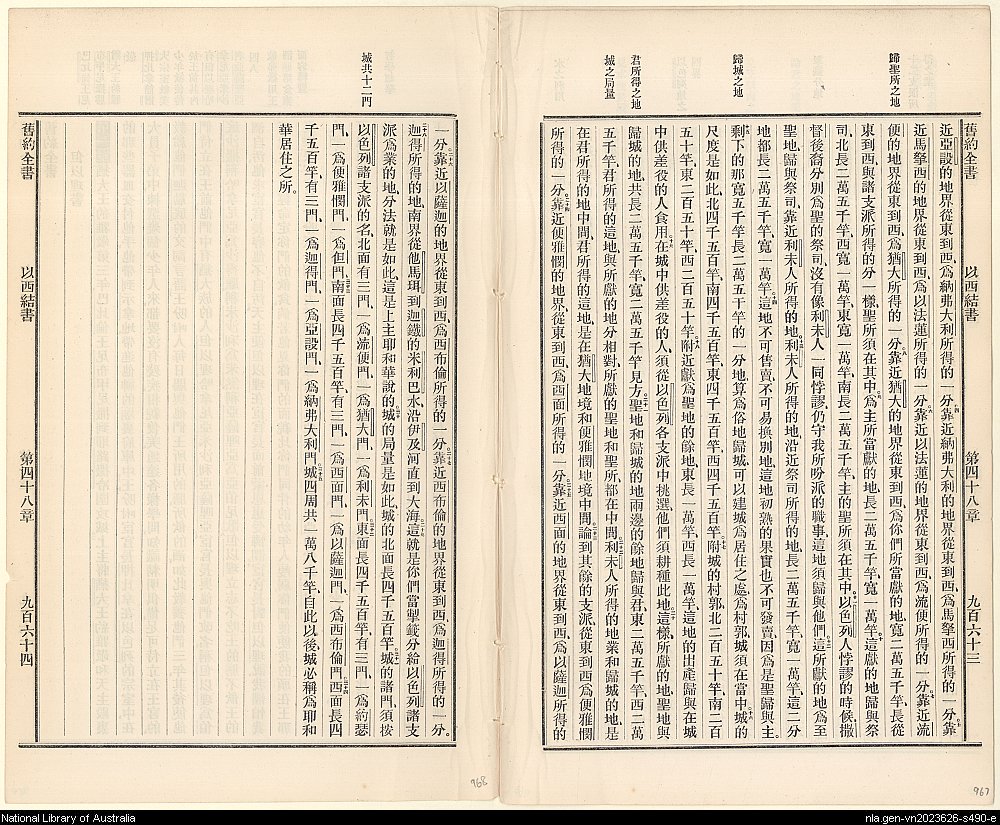 舊約全書 以西結書 第四十八章 九百六十三
歸聖所之地
歸城之地
君所得之地
城之局量
近亞設的地界從東到西、爲納弗大利所得的一分、靠近納弗大利的地界從東到西、爲馬拏西所得的一分、靠
近馬拏西的地界從東到西、爲以法蓮所得的一分、靠近以法蓮的地界從東到西、爲流便所得的一分、靠近流
便的地界從東到西、爲猶大所得的一分、靠近猶大的地界從東到西、爲你們所當獻的地、寬二萬五千竿、長從
東到西、與諸支派所得的分一樣、聖所須在其中、爲主所當獻的地、長二萬五千竿、寬一萬竿、這獻的地歸與祭
司、北長二萬五千竿、西寬一萬竿、東寬一萬竿、南長二萬五千竿、主的聖所須在其中、以色列人悖謬的時候、撒
督後裔分別爲聖的祭司、沒有像利未人一同悖謬、仍守我所吩派的職事、這地須歸與他們、這所獻的地爲至
聖地、歸與祭司、靠近利未人所得的地、利未人所得的地、沿近祭司所得的地、長二萬五千竿、寬一萬竿、這二分
地都長二萬五千竿、寬一萬竿、這地不可售賣、不可易換別地、這地初熟的果實也不可發賣、因爲是聖歸與主。
剩下的那寬五千竿、長二萬五千竿的一分地、算爲俗地歸城、可以建城、爲居住之處、爲村郭、城須在當中、城的
尺度是如此、北四千五百竿、南四千五百竿、東四千五百竿、西四千五百竿、附城的村郭、北二百五十竿、南二百
五十竿、東二百五十竿、西二百五十竿、附近獻爲聖地的餘地、東長一萬竿、西長一萬竿、這地的出產歸與在城
中供差役的人食用、在城中供差役的人、須從以色列各支派中挑選、他們須耕種此地、這樣、所獻的地、聖地與
歸城的地、共長二萬五千竿、寬二萬五千竿見方、聖地和歸城的地兩邊的餘地歸與君、東二萬五千竿、西二萬
五千竿、君所得的這地、與所獻的地分相對、所獻的聖地和聖所、都在中間、利未人所得的地業和歸城的地、是
在君所得的地中間、君所得的這地、是在猶大地境和便雅憫地境中間、論到其餘的支派、從東到西、爲便雅憫
所得的一分、靠近便雅憫的地界、從東到西、爲西面所得的一分、靠近西面的地界從東到西、爲以薩迦所得的
城共十二門
一分、靠近以薩迦的地界從東到西、爲西布倫所得的一分、靠近西布倫的地界從東到西、爲迦得所得的一分。
迦得所得的地、南界從他馬珥到迦鐵的米利巴水、沿伊及河直到大海、這就是你們當掣籤分給以色列諸支
派爲業的地、分法就是如此、這是上主耶和華說的、城的局量是如此、城的北面長四千五百竿、城的諸門、須按
以色列諸支派的名、北面有三門、一爲流便門、一爲猶大門、一爲利未門、東面長四千五百竿、有三門、一爲約瑟
門、一爲便雅憫門、一爲但門、南面長四千五百竿、有三門、一爲西面門、一爲以薩迦門、一爲西布倫門、西面長四
千五百竿、有三門、一爲迦得門、一爲亞設門、一爲納弗大利門、城四周共一萬八千竿、自此以後、城必稱爲耶和
華居住之所。
舊約全書 以西結書 第四十八章 九百六十四
968
967
National Library of Australia
nla.gen-vn2023626-s490-e